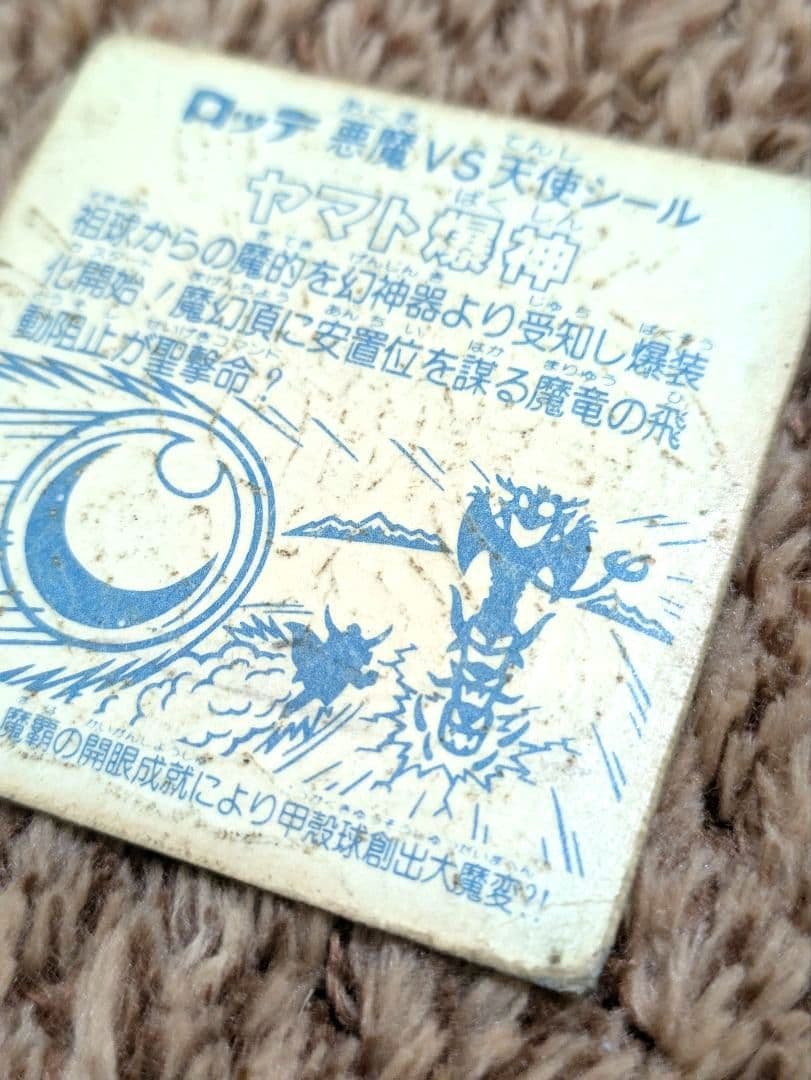 ロッテ 悪魔VS天使シール
ヤマト爆神
祖球からの魔的を幻神器より受知し爆装
化開始!魔幻頂に安置位を謀る魔竜の飛
動阻止が聖撃命?
魔覇の開眼成就により甲殻球創出大魔変?!